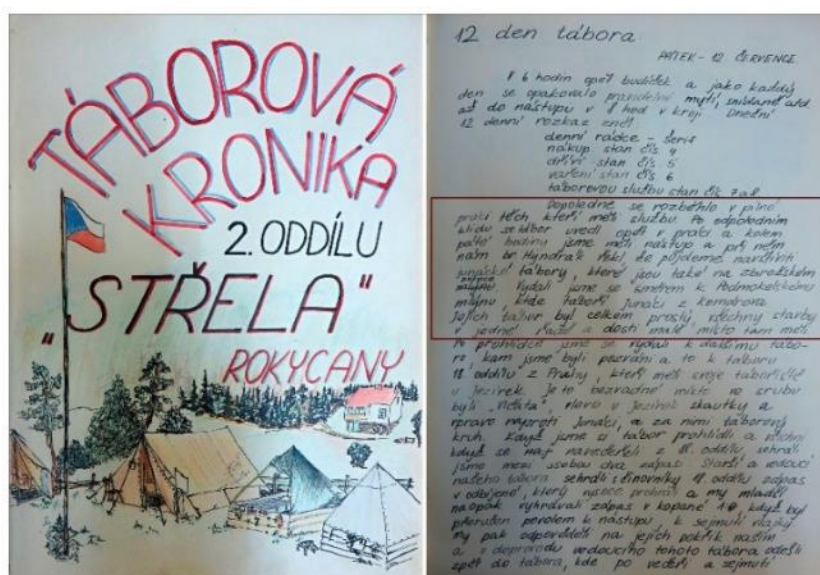 TÁBOROVÁ
KRONIKA
2. ODDÍLU
„STŘELA"
ROKYCANY
12 den tábora
PÁTEK - 12 ČERVENCE
V 6 hodin opět budíček a jako každý
den se opakovalo pravidelné mytí, snídaně atd.
až do nástupu v 8 hod v kroji. Dnešní
12 denní rozkaz zněl:
denní rádce - Šerif
nákup stan čís 4
dříví stan čís 5
vaření stan čís 6
táborovou službu stan čís 7 a 8
Dopoledne se rozběhlo v pilné
práci těch kteří měli službu. Po odpoledním
klidu se tábor uvedl opět v práci a kolem
páté hodiny jsme měli nástup a při něm
nám br Hyndrák řekl, že půjdeme navštívit
junácké tábory, které jsou také na zbirožském
Vydali jsme se směrem k Podmokelskému
mlýnu, kde táboří junáci z
Jejich tábor byl celkem prostý, všechny stavby
v jedné řadě a dosti malé místo tam měli
Po prohlídce jsme se vydali k dalšímu tábo-
ru, kam jsme byli pozváni a to k táboru
18. oddílu z Prahy, který měl svoje tábořiště
u Jezírek. Je to bezvadné místo ve srubu
byli vlevo v jezírek skautky a
vpravo naproti junáci, a za nimi táborový
kruh. Když jsme si tábor prohlédli a všichni
když se naj navečeřeli z 18. oddílu sehráli
jsme mezi sebou dva zápasy. Starší a vedoucí
našeho tábora sehráli s činovníky 18. oddílu zápas
v odbíjené, který vysoce prohráli a my mladší
naopak vyhrávali zápas v kopané 1:0, když byl
přerušen povelem k nástupu k sejmutí vlajky
my pak odpověděli na jejich pokřik naším
a v doprovodu vedoucího tohoto tábora odešli
zpět do tábora, kde po večeři a sejmutí